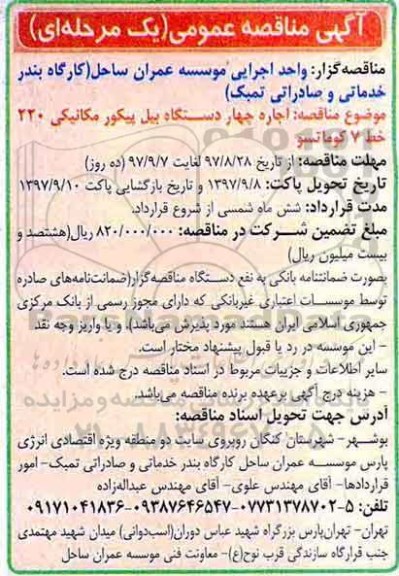 آگهی مناقصه عمومی(یک مرحله‌ای)
مناقصه‌گزار: واحد اجرایی موسسه عمران ساحل(کارگاه بندر
خدماتی و صادراتی تمبک)
موضوع مناقصه: اجاره چهار دستگاه بیل پیکور مکانیکی ۲۲۰
خط ۷ کوماتسو
مهلت مناقصه: از تاریخ ۹۷/۸/۲۸ لغایت ۹۷/۹/۷ (ده روز)
تاریخ تحویل پاکت: ۱۳۹۷/۹/۸ و تاریخ بازگشایی پاکت ۱۳۹۷/۹/۱۰
مدت قرارداد: شش ماه شمسی از شروع قرارداد.
مبلغ تضمین شرکت در مناقصه: ۸۲۰/۰۰۰/۰۰۰ ریال(هشتصد و
بیست میلیون ریال)
بصورت ضمانتنامه بانکی به نفع دستگاه مناقصه‌گزار(ضمانت‌نامه‌های صادره
توسط موسسات اعتباری غیربانکی که دارای مجوز رسمی از بانک مرکزی
جمهوری اسلامی ایران هستند مورد پذیرش می‌باشد). و یا واریز وجه نقد
- این موسسه در رد یا قبول پیشنهاد مختار است.
سایر اطلاعات و جزییات مربوط در اسناد مناقصه درج شده است.
- هزینه درج آگهی برعهده برنده مناقصه می‌باشد.
آدرس جهت تحویل اسناد مناقصه:
بوشهر- شهرستان کنگان روبروی سایت دو منطقه ویژه اقتصادی انرژی
پارس موسسه عمران ساحل کارگاه بندر خدماتی و صادراتی تمبک- امور
قراردادها- آقای مهندس علوی- آقای مهندس عبداله‌زاده
تلفن: ۵-۰۷۷۳۱۳۷۸۷۰۲-۰۹۳۸۷۶۴۶۵۴۷-۰۹۱۷۱۰۴۱۸۳۶
تهران- تهران‌پارس بزرگراه شهید عباس دوران(اسب‌دوانی) میدان شهید مهتمدی
جنب قرارگاه سازندگی قرب نوح(ع)- معاونت فنی موسسه عمران ساحل